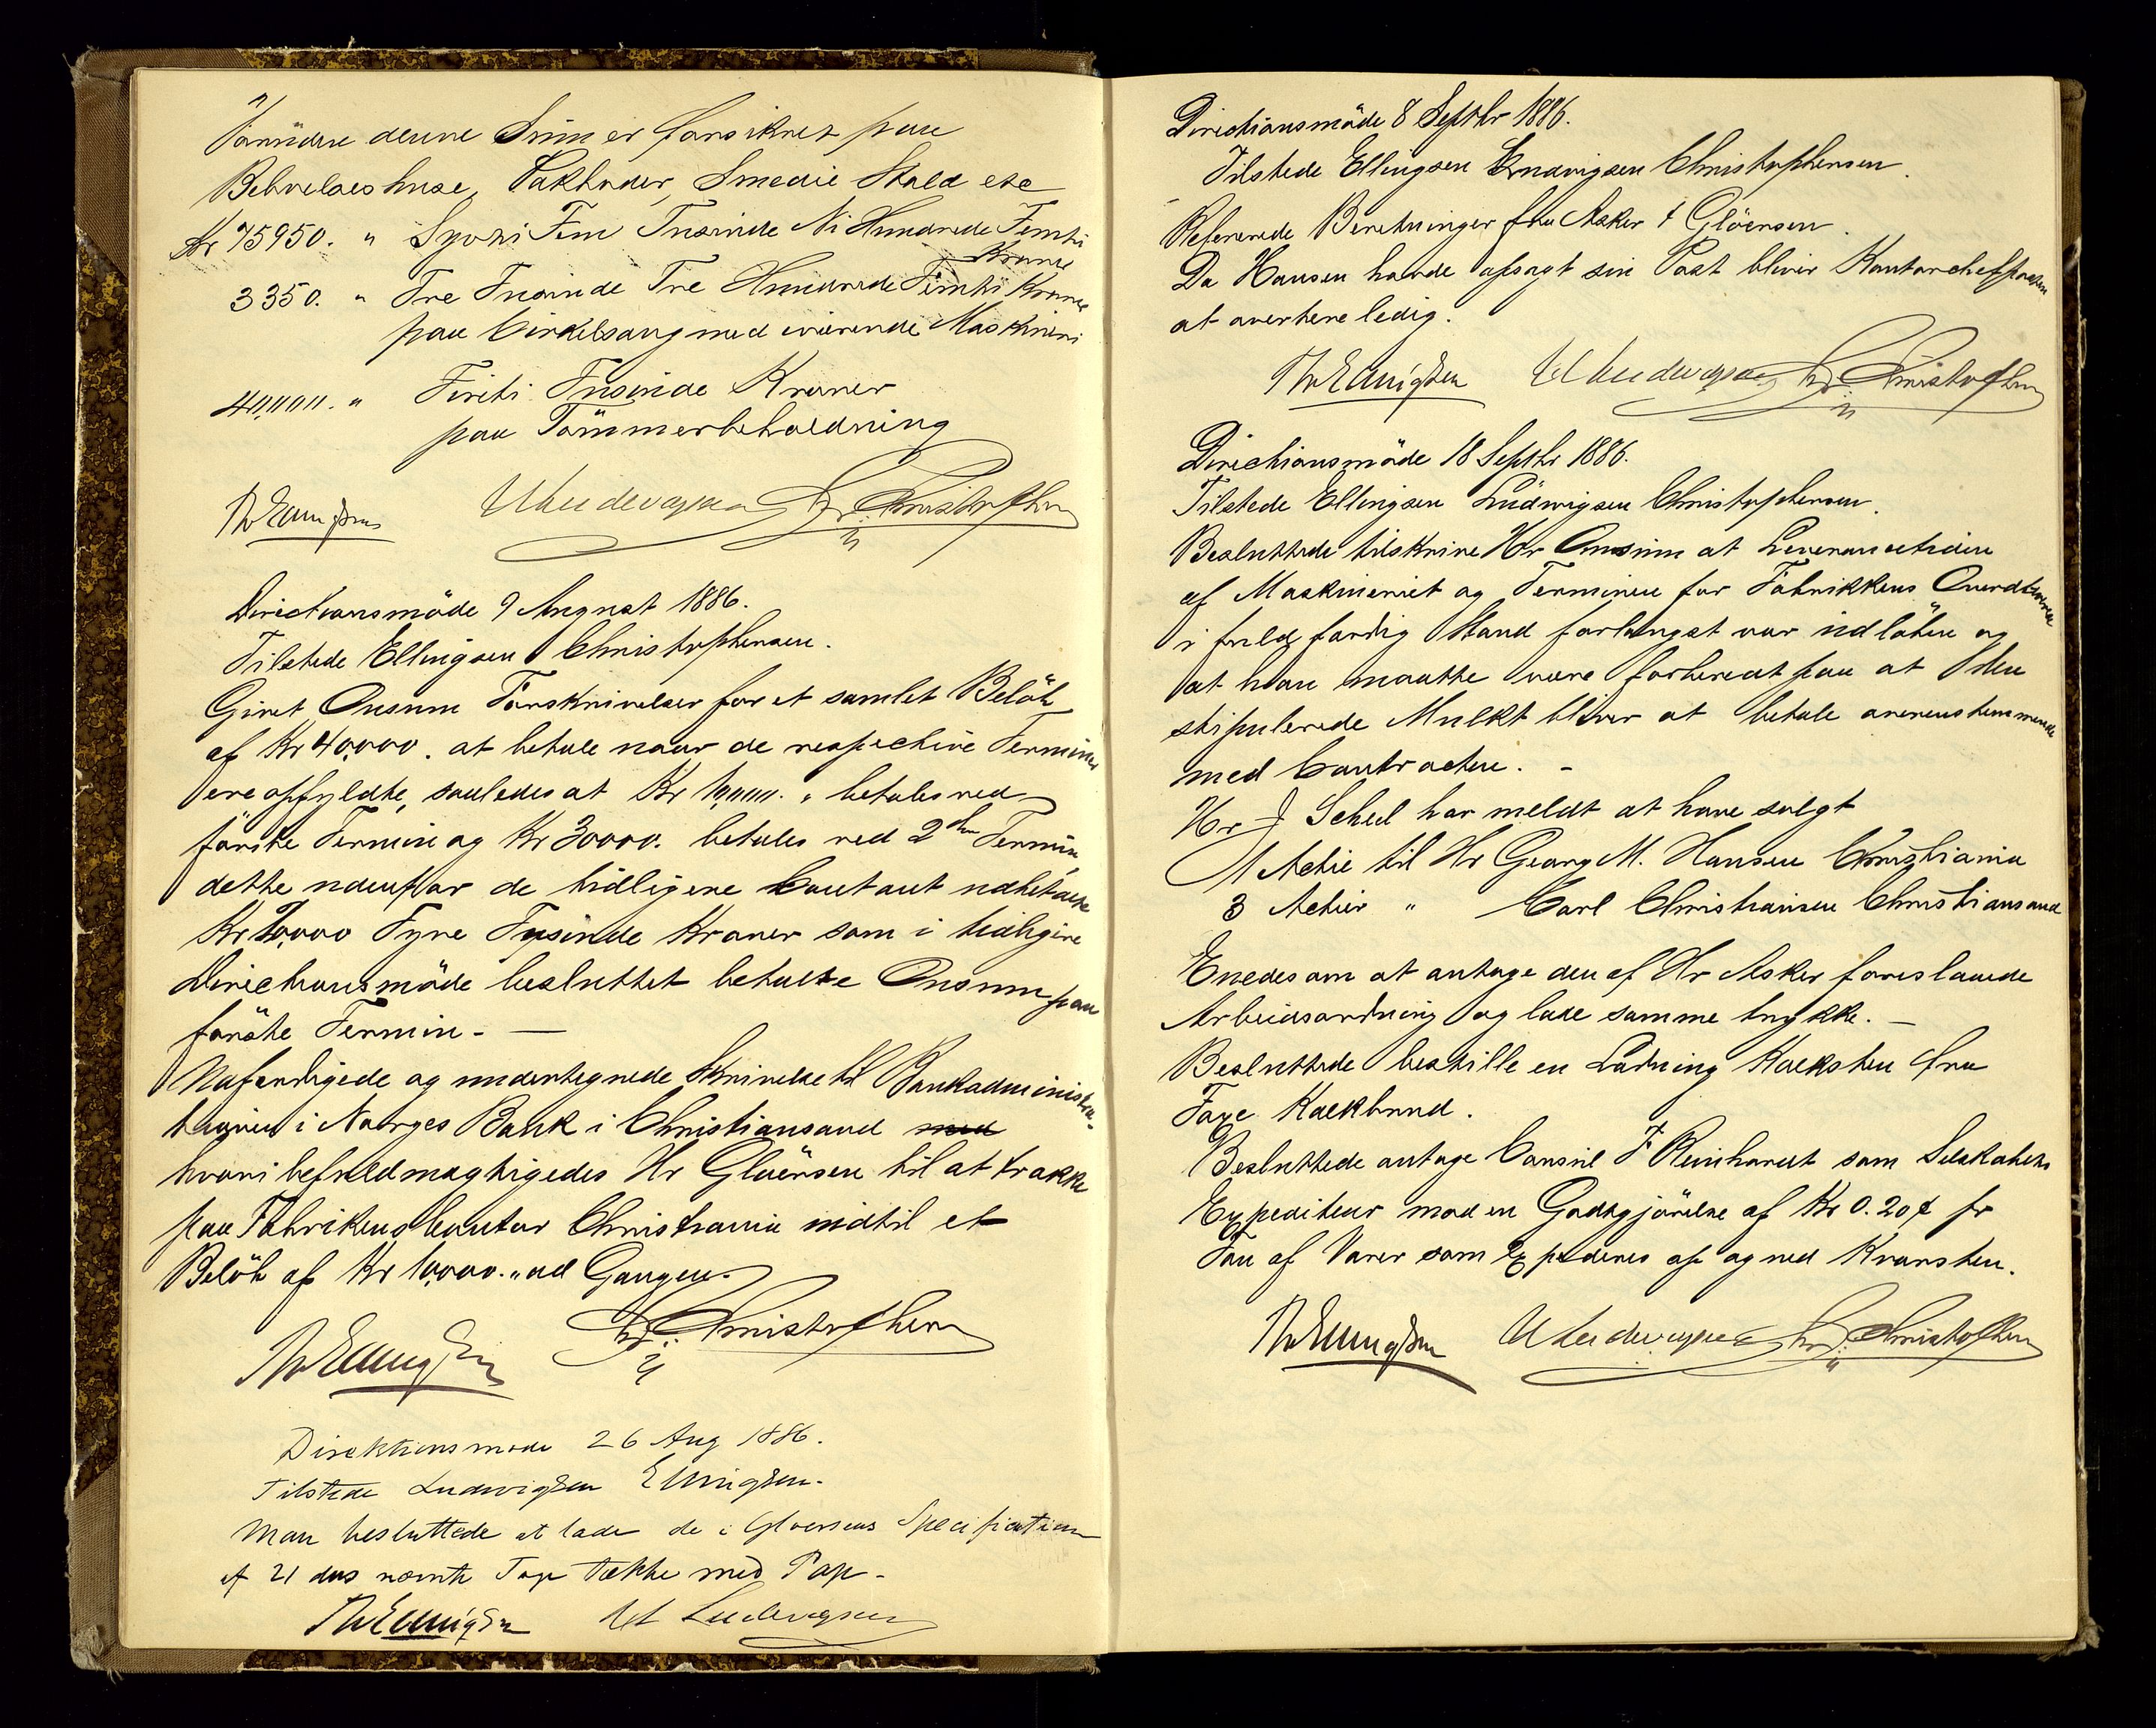 Foruden denne Sum er forsikret paa
Beboelseshuse, Pakboder, Smedie Stald etc
Kr 75950. " Sytti Fem Tusinde Ni Hundrede Femti
Kroner
3350. " Tre Tusinde Tre Hundrede Femti Kroner
paa Cirkelsaug med iværende Maskineri
40,000. " Firti Tusinde Kroner
paa Tömmerbeholdning
Th Ellingsen Chr. Christophersen
Directionsmöde 9 August 1886.
Tilstede Ellingsen Christophersen.
Givet Onsum Forskrivelser for et samlet Belöb
af Kr 40,000. at betale naar de respective Terminer
ere opfyldte, saaledes at Kr 10,000. " betales ved
förste Termin og Kr 30000. betales ved 2den Termin
dette udenfor de tidligere Contant udbetalte
Kr 20,000 Tyve Tusinde Kroner som i tidligere
Directionsmöde besluttet betalte Onsum paa
förste Termin. —
Udferdigede og undertegnede Skrivelse til Bankadministra-
tionen i Norges Bank i Christiansand med
hvori befuldmægtigedes Hr Gloërsen til at trække
paa Fabrikens Contor Christiania indtil et
Belöb af Kr 10,000. " ad Gangen.
Th Ellingsen Chr. Christophersen
Direktionsmøde 26 Aug 1886.
Tilstede Ludwigsen Ellingsen.
Man besluttede at lade de i Gloersens Specification
af 21 ds nævnte Tage tække med Pap.
Th Ellingsen Ludwigsen
Directionsmöde 8 Septbr 1886.
Tilstede Ellingsen Ludwigsen Christophersen.
Refererede Beretninger fra Asker & Glöersen.
Da Hansen havde opsagt sin Post bliver Kontorchefposten
at avertere ledig.
Th Ellingsen Ludwigsen Chr. Christophersen
Directionsmöde 18 Septbr 1886.
Tilstede Ellingsen Ludwigsen Christophersen.
Besluttede tilskrive Hr Onsum at Leverancetiden
af Maskineriet og Terminen for Fabrikkens
i fuld færdig Stand forlængst var udlöben og
at han maatte være forberedt paa at den
stipulerede Mulkt bliver at betale overenstemmende
med Contracten. -
Hr J Scheel har meldt at have solgt
1 Actie til Hr Georg M. Hansen Christiania
3 Actier " Carl Christiansen Christiansand
Enedes om at antage den af Hr Asker foreslaaede
Arbeidsordning og lade samme trykke. —
Besluttede bestille en Ladning Kalksten fra
Faxe Kalkbrud.
Besluttede antage Consul F Reinhardt som Selskabets
Expediteur mod en Godtgjörelse af Kr 0.20 ø pr
Ton af Varer som Expederes op og ned Kvarsten.
Th Ellingsen Ludwigsen Chr. Christophersen